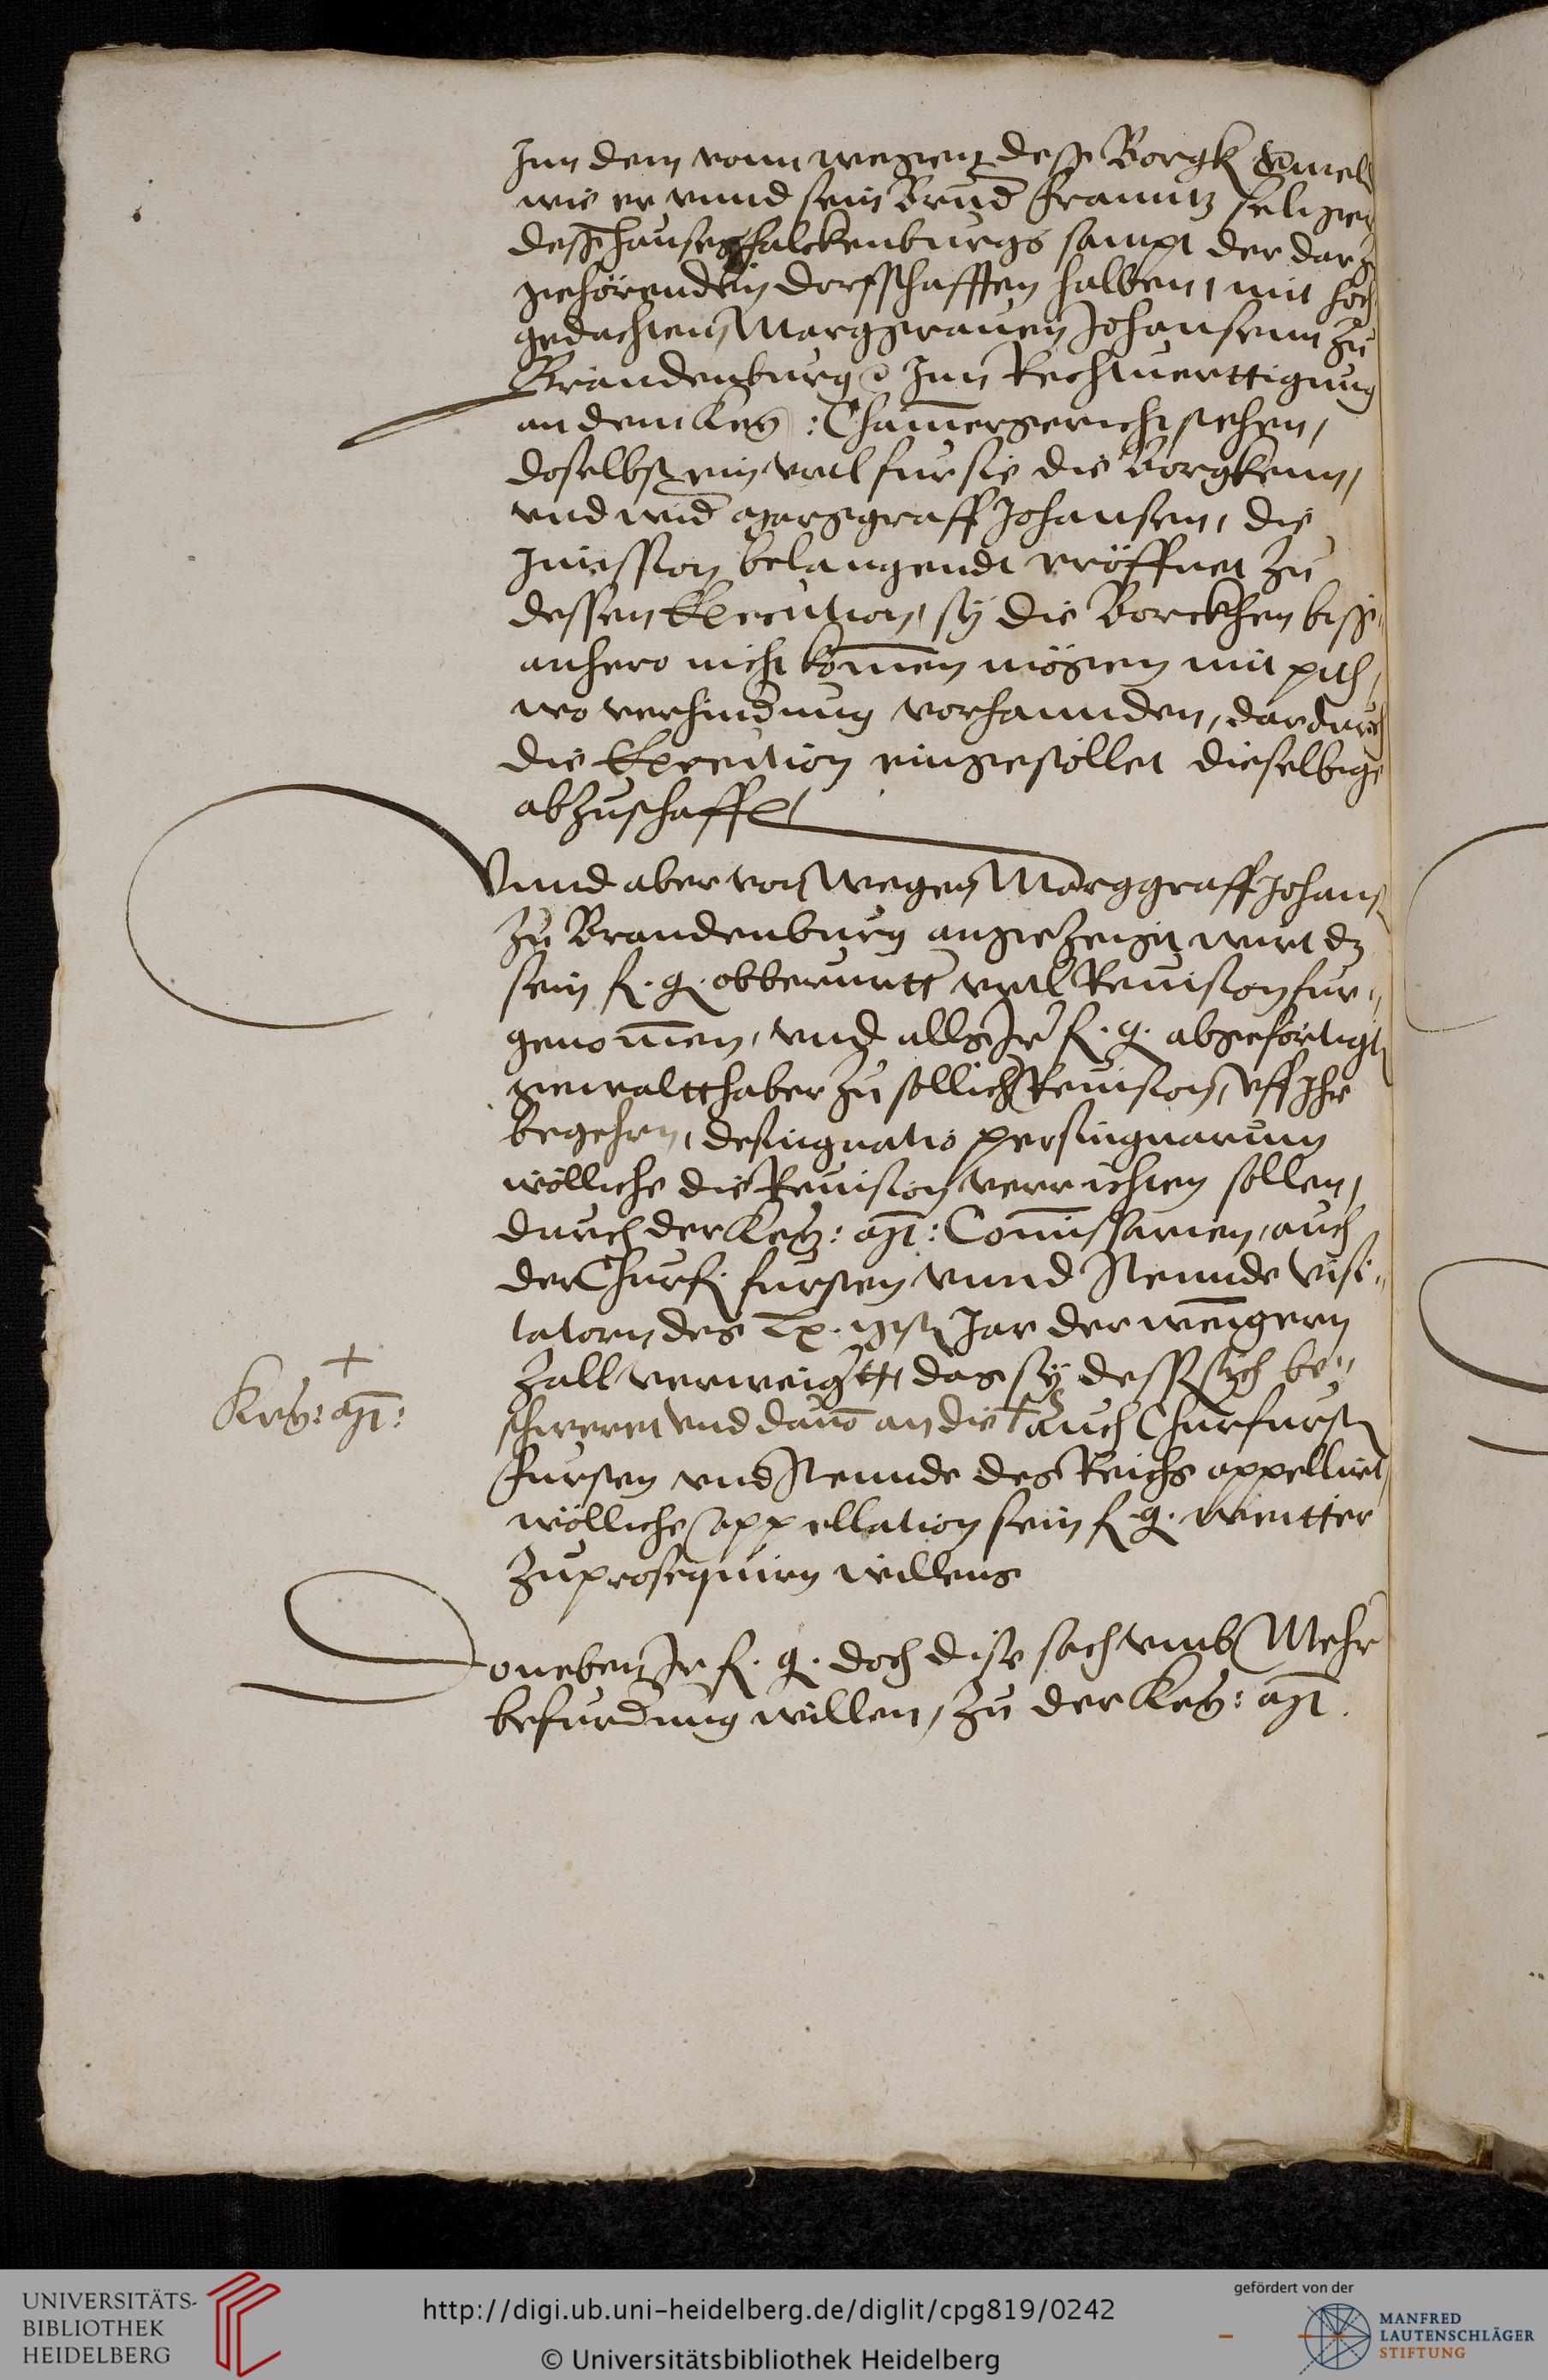 Inn dem vonn wegen deß Borgk
wie er vnnd sein Bruder Franntz seligen
deß hauses Falckenburgs sampt der darzu
gehörenden dorfschafften halben, mit hoch
gedachten Marggrauen Johansenn zu
Brandenburg Inn Rechtuerttigung
an dem Key: Chamergericht stehen,
doselbst ein vrtl fur sie die Borgkenn,
vnd wider Marggraff Johansen, die
Imission belangendt eröffnet zu
dessen Execution, sy die Borckhen biß-
anhero nicht komen mögen mit pith,
wo verhinderung vorhannden, dardurch
die Execution eingestöllet dieselbige
abzuschaffen
Vnnd aber von wegen Marggraff Johans
zu Brandenburg angezeigt wirt dz
sein f. g. obberurtter vrtl Reuision fur-
genomen, vnd alls Ir f. g. abgefertigt
gewaltthaber zu sollicher Reuision, vff Ihr
begehrn, designatio personarum
wölliche die Reuision verrichten sollen,
durch der Key: Mt: Comissarien, auch
der Churf. fursten vnnd Stennde visi-
tatorn des Lx. Jar der wengern
Zall verweigertt, das sy deß sich be-
schweret vnd dauon an die + auch Churfurst
Fursten vnd Stennde des Reichs appellirt,
wölliche appellation sein f. g. weitter
zuprosequirn willens
+
Key: Mt:
Doneben Ir f. g. doch dise sach vmb Mehr
befurderung willen, zu der Key: Mt.
UNIVERSITÄTS-
BIBLIOTHEK
HEIDELBERG
http://digi.ub.uni-heidelberg.de/diglit/cpg819/0242
© Universitätsbibliothek Heidelberg
gefördert von der
MANFRED
LAUTENSCHLÄGER
STIFTUNG